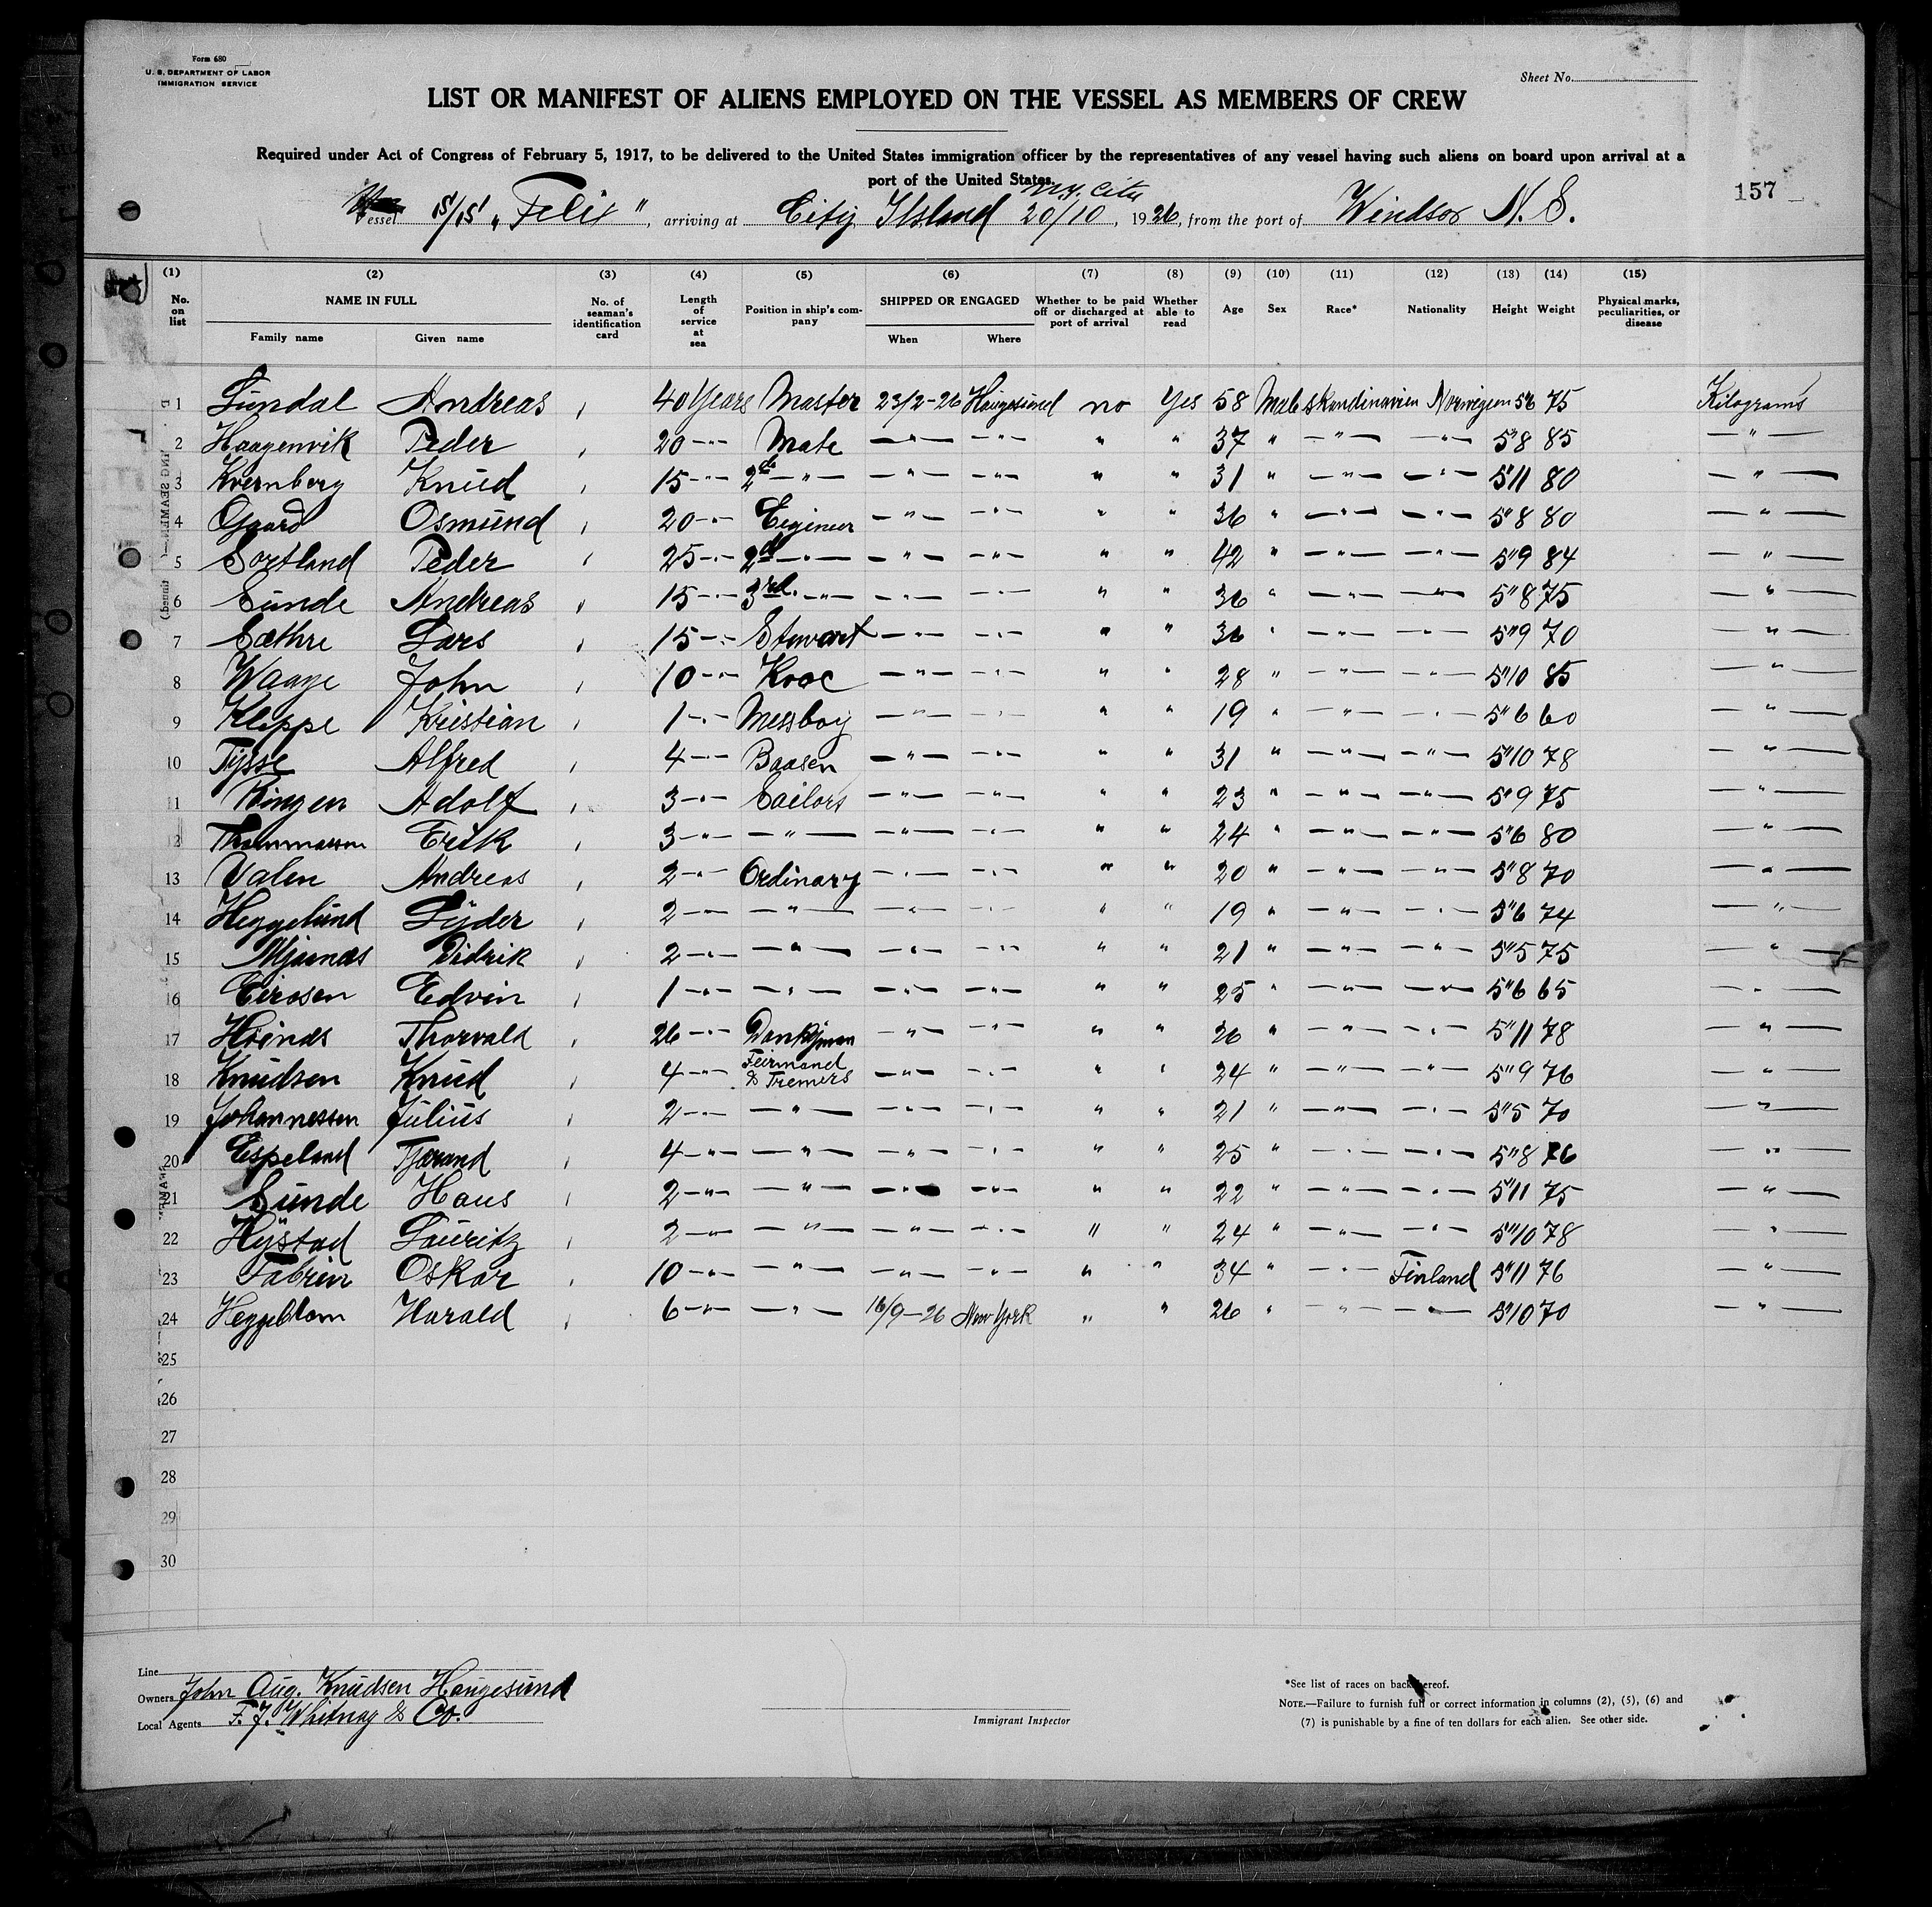 Form 680
U. S. DEPARTMENT OF LABOR
IMMIGRATION SERVICE
Sheet No.
LIST OR MANIFEST OF ALIENS EMPLOYED ON THE VESSEL AS MEMBERS OF CREW
Required under Act of Congress of February 5, 1917, to be delivered to the United States immigration officer by the representatives of any vessel having such aliens on board upon arrival at a
port of the United States.
157
N.Y. City
Vessel S/S "Felix", arriving at City Island 20/10, 1926, from the port of Windsor N. S.
(1) (2) (3) (4) (5) (6) (7) (8) (9) (10) (11) (12) (13) (14) (15)
No. on list NAME IN FULL Family name Given name No. of seaman's identification card Length of service at sea Position in ship's company SHIPPED OR ENGAGED When Where Whether to be paid off or discharged at port of arrival Whether able to read Age Sex Race* Nationality Height Weight Physical marks, peculiarities, or disease
1 Lündal Andreas 40 Years Master 23/2-26 Haugesund no Yes 58 Male Skandinavien Norwegien 5"6 75 Kilograms
2 Haagenvik Peder 20 -"- Mate -"- -"- " " 37 " -"- -"- 5"8 85 -"-
3 Kvernberg Knud 15 -"- 2d -"- -"- -"- " " 31 " -"- -"- 5"11 80 -"-
4 Gaard Osmund 20 -"- Eigineer -"- -"- " " 36 " -"- -"- 5"8 80 -"-
5 Sortland Peder 25 -"- 2d -"- -"- -"- " " 42 " -"- -"- 5"9 84 -"-
6 Sunde Andreas 15 -"- 3rd -"- -"- -"- " " 36 " -"- -"- 5"8 75 -"-
7 Sæthre Lars 15 -"- Stewart -"- -"- " " 36 " -"- -"- 5"9 70 -"-
8 Waage John 10 -"- Kooc -"- -"- " " 28 " -"- -"- 5"10 85 -"-
9 Kleppe Kristian 1 -"- Messboy -"- -"- " " 19 " -"- -"- 5"6 60 -"-
10 Tysse Alfred 4 -"- Baasen -"- -"- " " 31 " -"- -"- 5"10 78 -"-
11 Ringen Adolf 3 -"- Sailors -"- -"- " " 23 " -"- -"- 5"9 75 -"-
12 Thommassen Erik 3 -"- -"- -"- -"- " " 24 " -"- -"- 5"6 80 -"-
13 Valen Andreas 2 -"- Ordinary -"- -"- " " 20 " -"- -"- 5"8 70 -"-
14 Heggelund Lyder 2 -"- -"- -"- -"- " " 19 " -"- -"- 5"6 74 -"-
15 Didrik 2 -"- -"- -"- -"- " " 21 " -"- -"- 5"5 75 -"-
16 Eirosen Edvin 1 -"- -"- -"- -"- " " 25 " -"- -"- 5"6 65 -"-
17 Thorvald 26 -"- Donkyman -"- -"- " " 26 " -"- -"- 5"11 78 -"-
18 Knudsen Knud 4 -"- Feirmand & Tremers -"- -"- " " 24 " -"- -"- 5"9 76 -"-
19 Johannessen Julius 2 -"- -"- -"- -"- " " 21 " -"- -"- 5"5 70 -"-
20 Espeland Tjørand 4 -"- -"- -"- -"- " " 25 " -"- -"- 5"8 76 -"-
21 Sunde Hans 2 -"- -"- -"- -"- " " 22 " -"- -"- 5"11 75 -"-
22 Hystad Lauritz 2 -"- -"- -"- -"- " " 24 " -"- -"- 5"10 78 -"-
23 Oskar 10 -"- -"- -"- -"- " " 34 " -"- Finland 5"11 76 -"-
24 Heggeblom Harald 6 -"- -"- 16/9-26 New York " " 26 " -"- -"- 5"10 70 -"-
25
26
27
28
29
30
Line
Owners John Aug. Knudsen Haugesund
Local Agents F. J. Whitney & Co.
Immigrant Inspector
*See list of races on back hereof.
NOTE.—Failure to furnish full or correct information in columns (2), (5), (6) and
(7) is punishable by a fine of ten dollars for each alien. See other side.